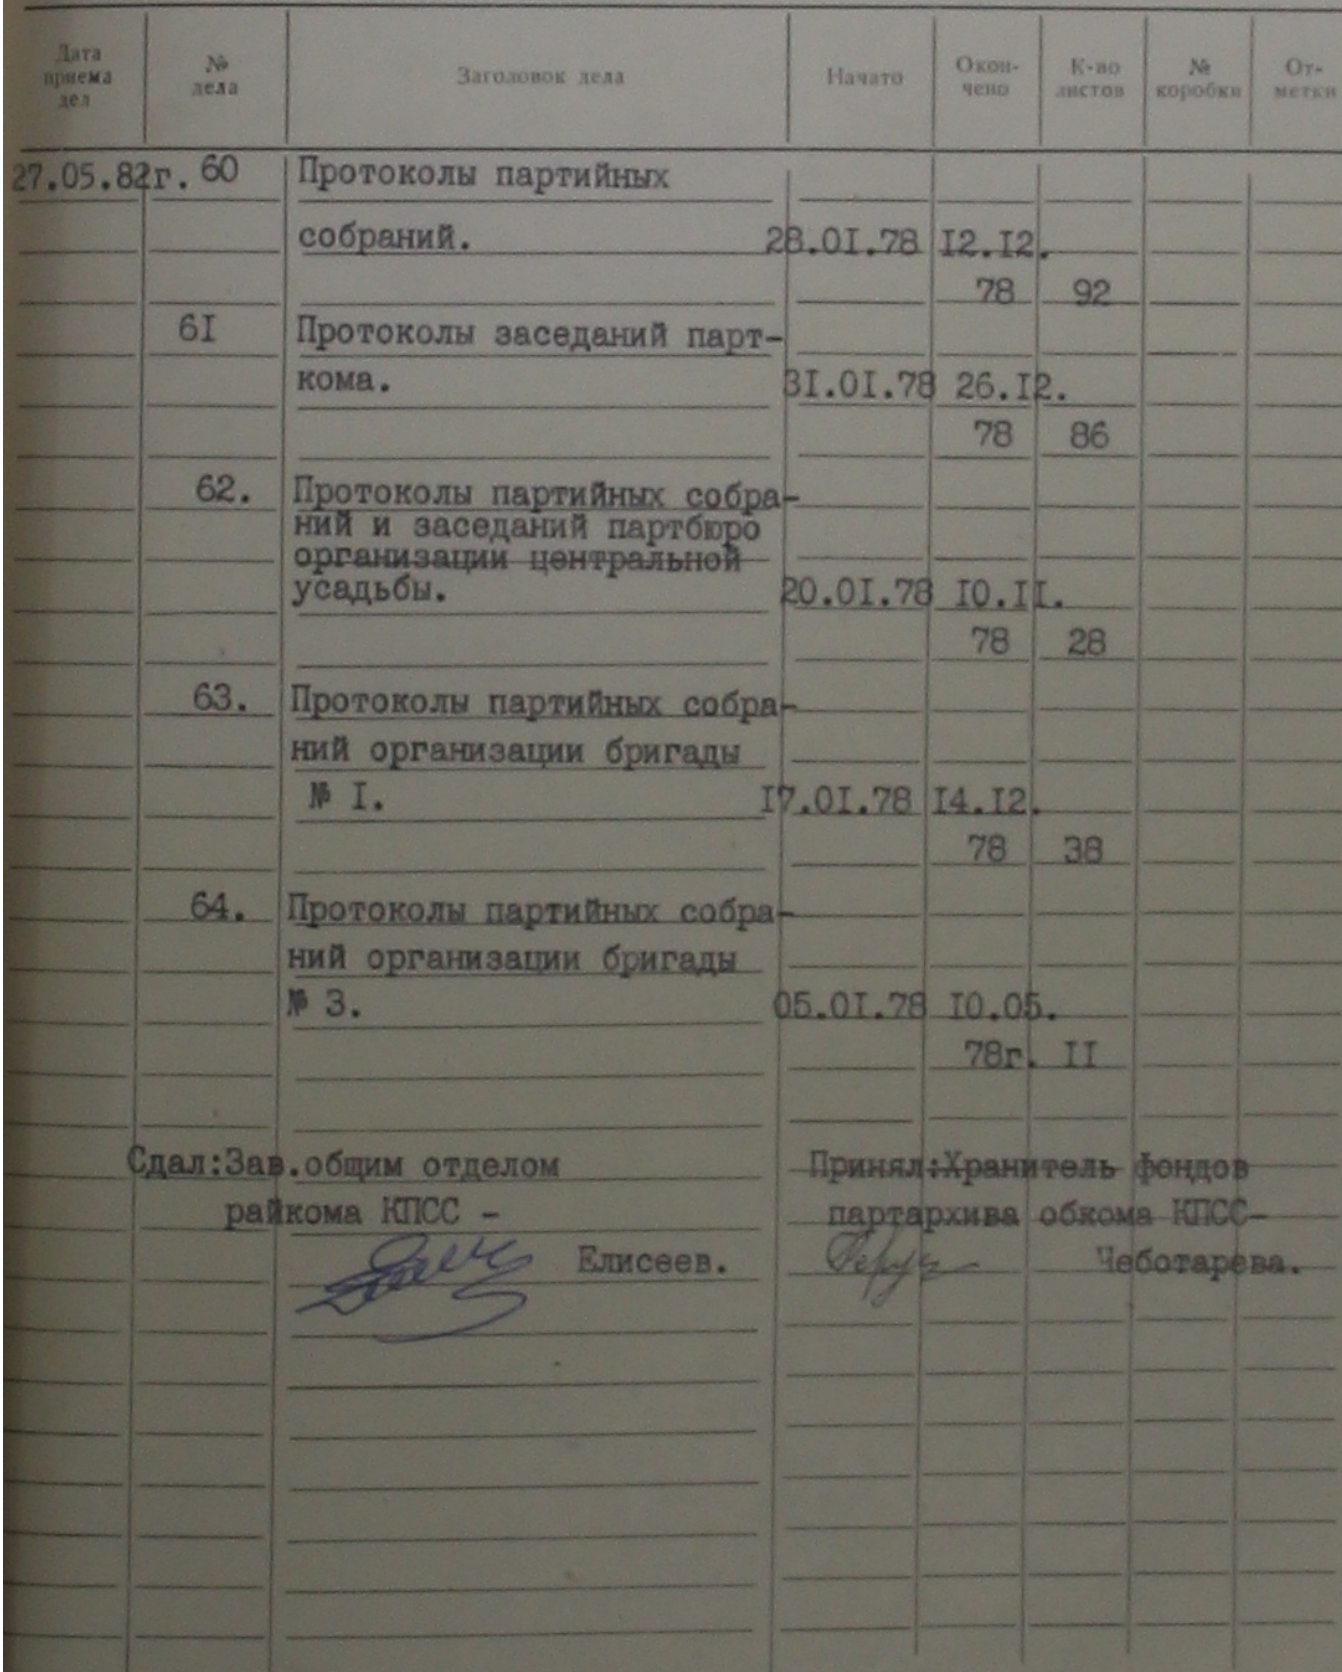 Дата приема дел № дела Заголовок дела Начато Окон- чено К-во листов № коробки От- метки
27.05.82г. 60 Протоколы партийных
собраний. 28.01.78 12.12.
78 92
61 Протоколы заседаний парт-
кома. 31.01.78 26.12.
78 86
62. Протоколы партийных собра-
ний и заседаний партбюро
организации центральной
усадьбы. 20.01.78 10.11.
78 28
63. Протоколы партийных собра-
ний организации бригады
№ 1. 17.01.78 14.12.
78 38
64. Протоколы партийных собра-
ний организации бригады
№ 3. 05.01.78 10.05.
78г. 11
Сдал:Зав.общим отделом Принял:Хранитель фондов
райкома КПСС - партархива обкома КПСС-
Елисеев. Чеботарева.